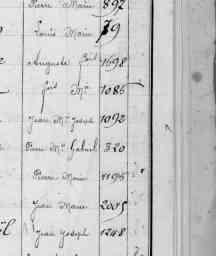 Pierre Marie 892
Louis Marie 79
Auguste fils 1698
fils Mie 1086
Jean Mie Joseph 1092
Pierre Mie Gabriel 320
Pierre Marie 1195
Jean Marie 2005
Jean Joseph 1248